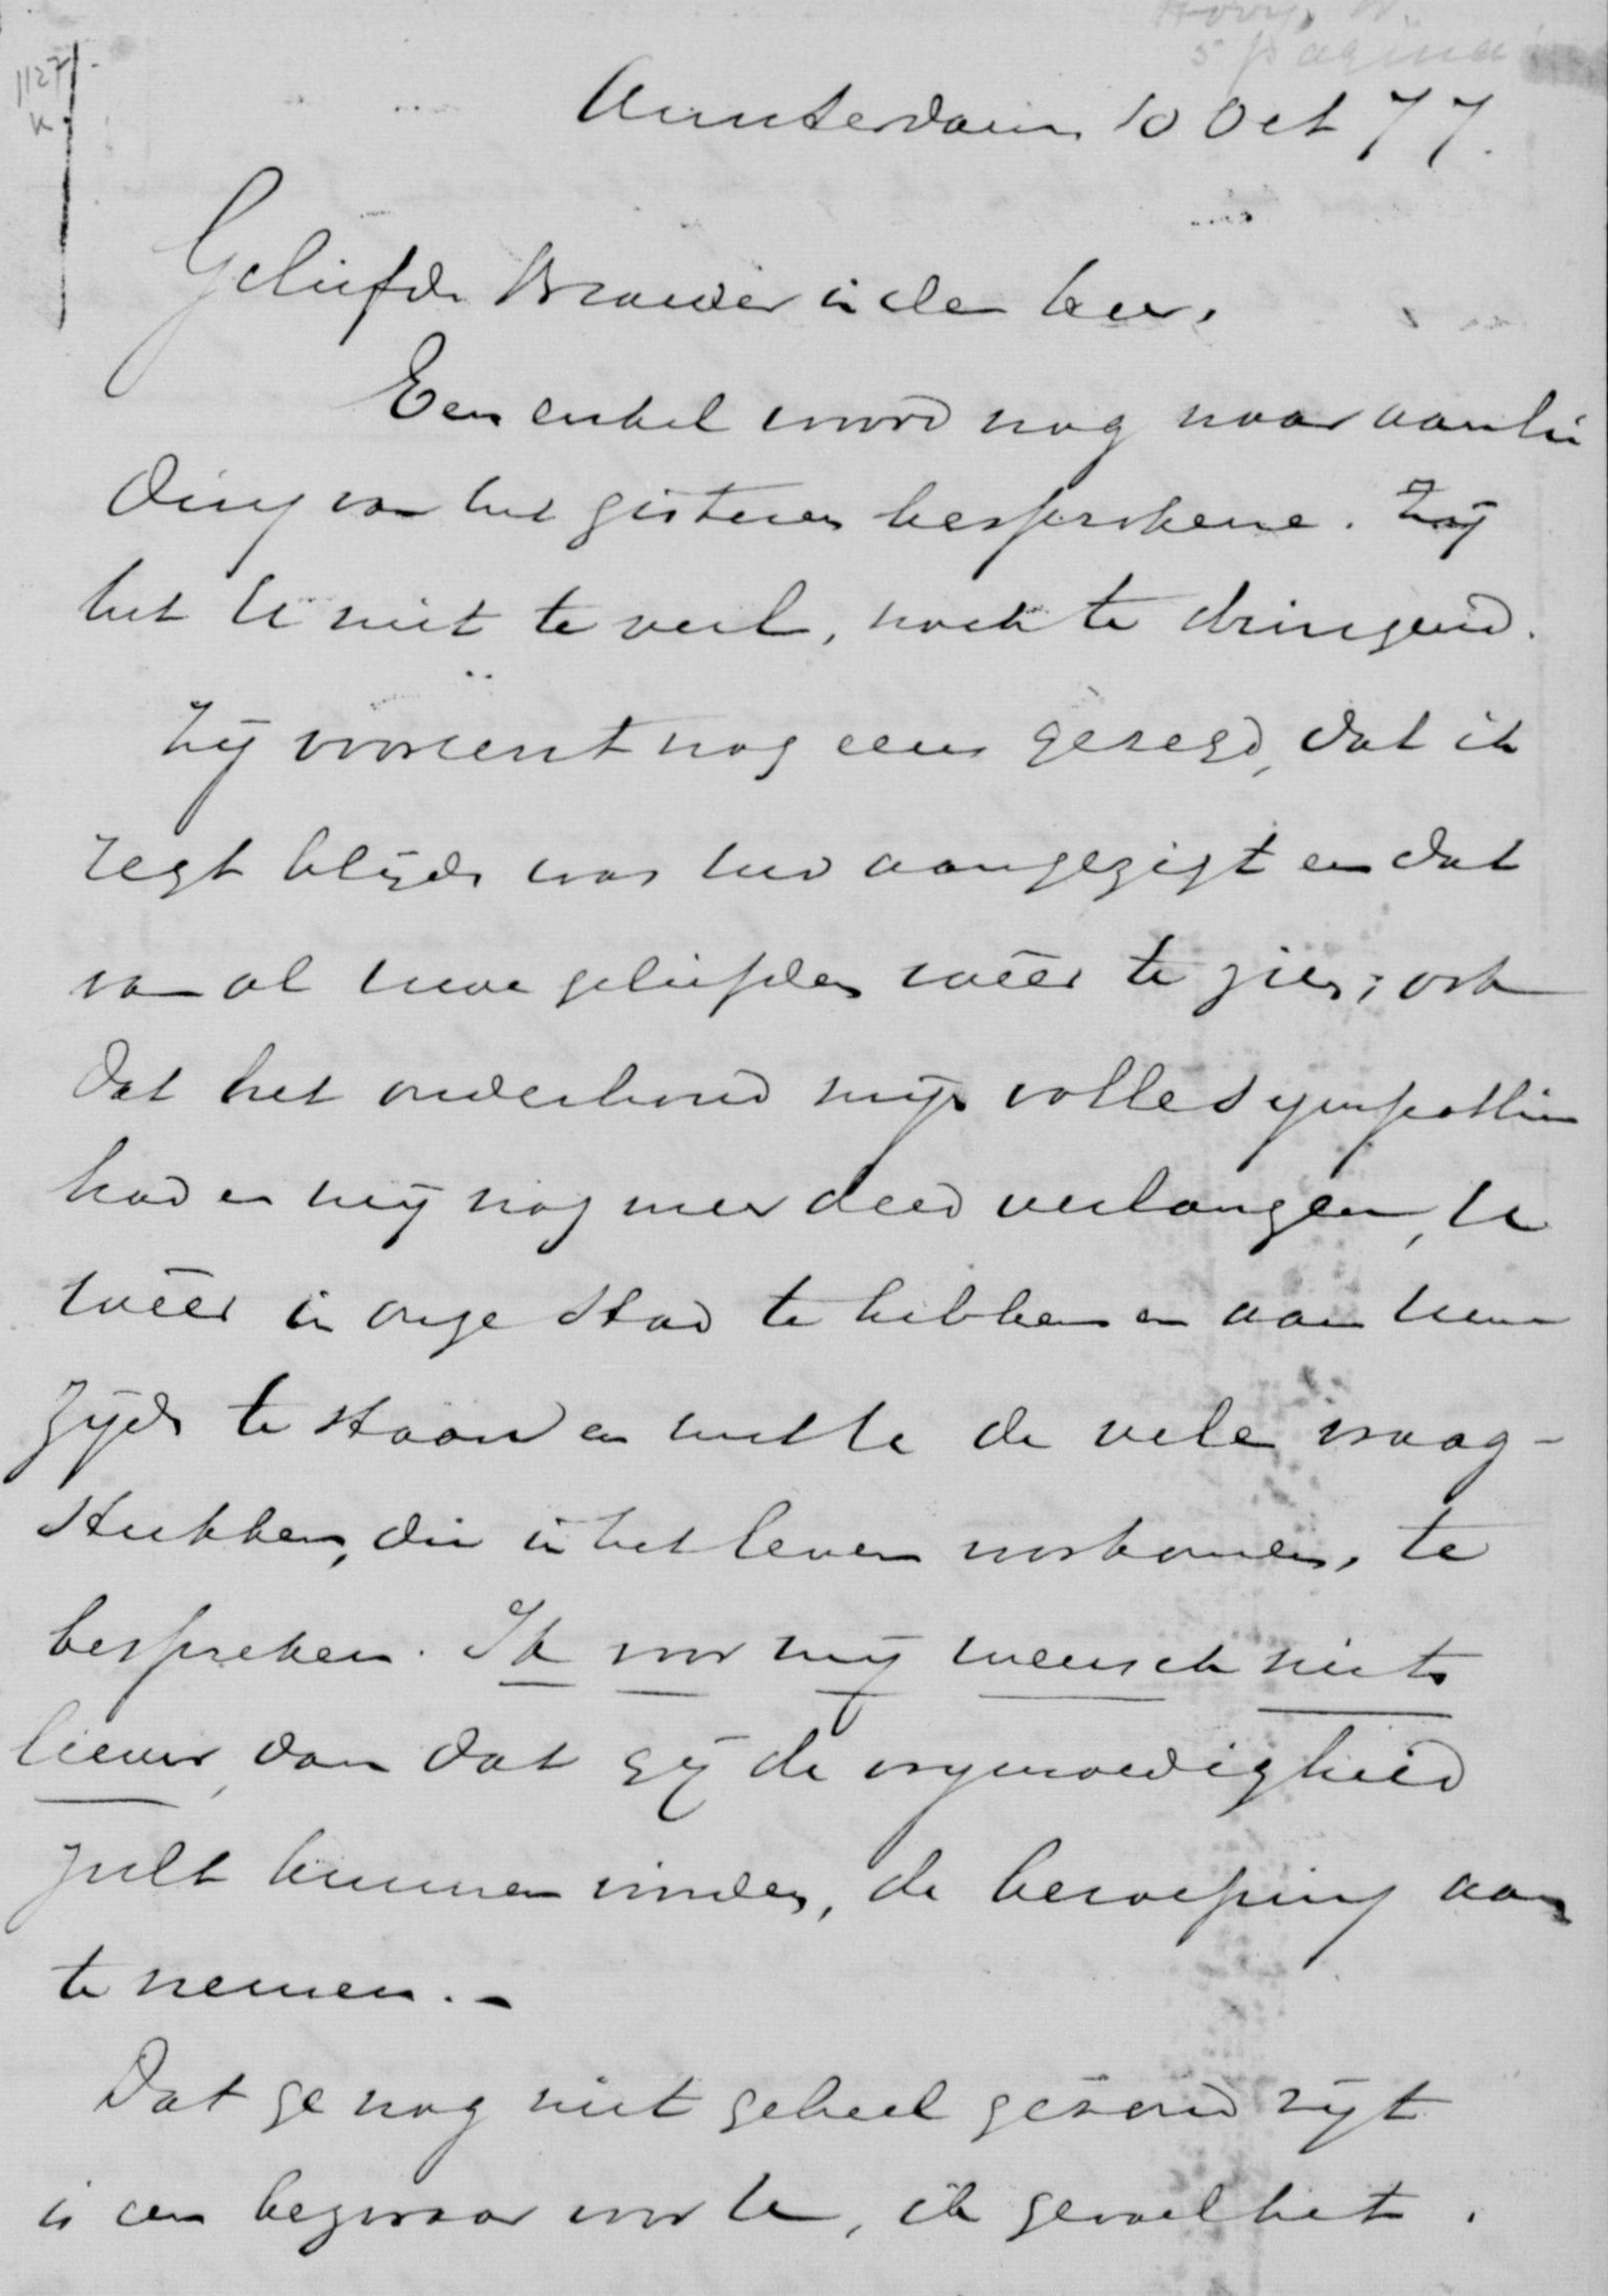 Hovy, W.
5 pagina's
1127
K.
Amsterdam 10 Oct 77.
Geliefde Broeder in den heer,
Een enkel woord nog naar aanlei
ding van het gisteren besprokene. Zij
het U niet te veel, noch te dringend.
Zij vooreerst nog eens gezegd, dat ik
regt blijde was uw aangezigt en dat
van al uwe geliefden wêer te zien; ook
dat het onderhoud mijn volle sympathie
had en mij nog meer deed verlangen, U
wêer in onze stad te hebben en aan uwe
zijde te staan en met U de vele vraag-
stukken, die in het leven voorkomen, te
bespreken. Ik voor mij wensch niets
liever, dan dat gij de vrijmoedigheid
zult kunnen vinden, de beroeping aan
te nemen. -
Dat ge nog niet geheel gezond zijt
is een bezwaar voor U, ik gevoel het.